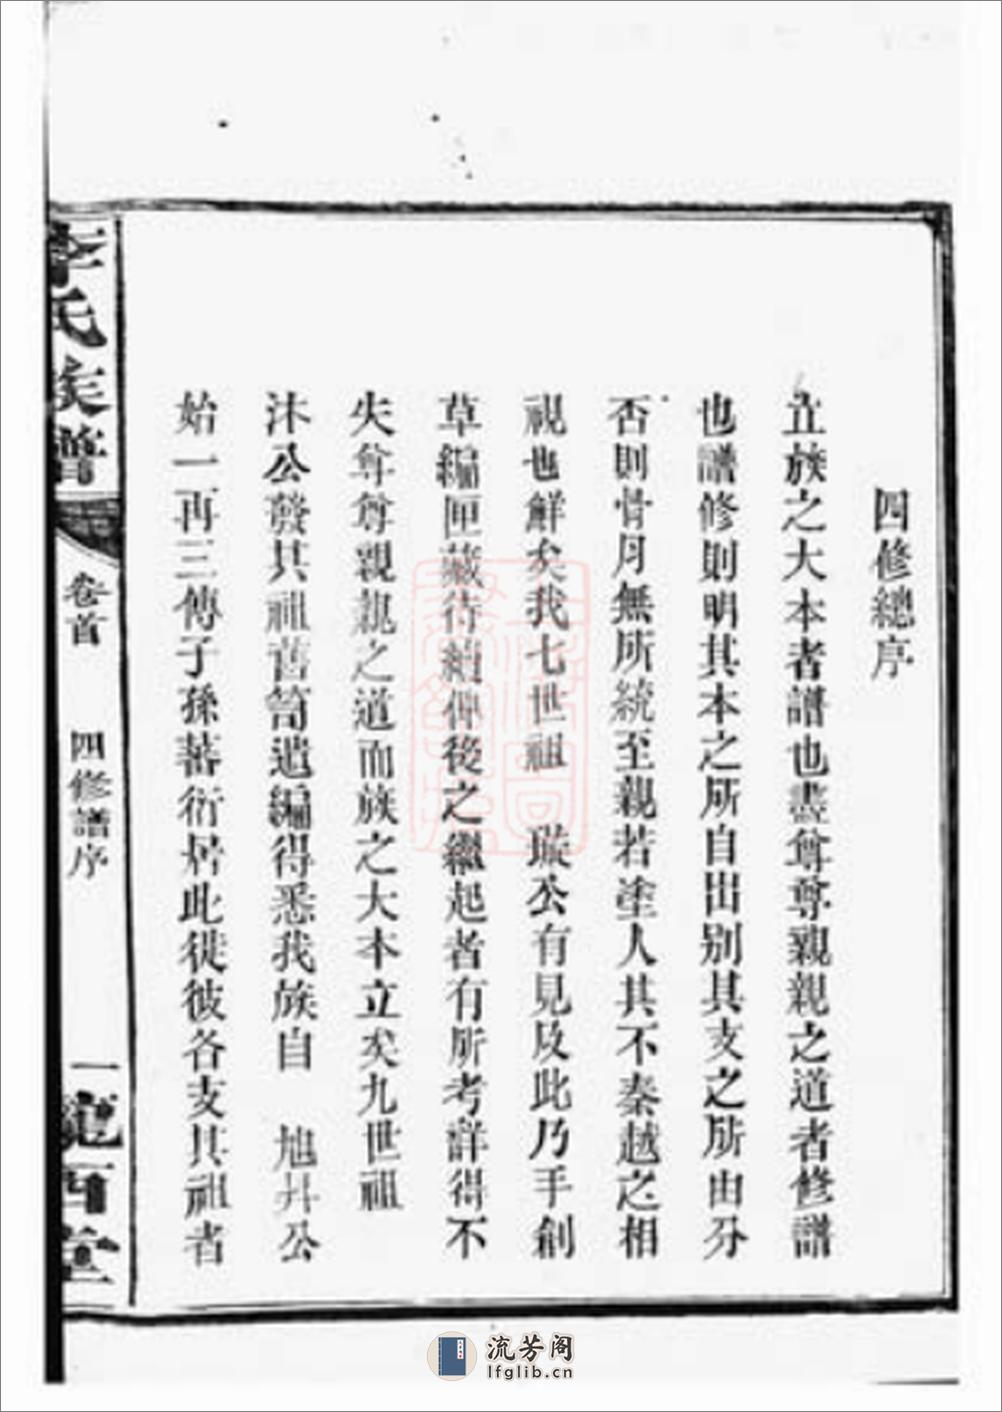 四修總序
立族之大本者譜也盡尊尊親親之道者修譜
也譜修則明其本之所自出别其支之所由分
否則骨月無所統至親若塗人其不秦越之相
視也鮮矣我七世祖 璇公有見及此乃手創
草編匣藏待續俾後之繼起者有所考詳得不
失尊尊親親之道而族之大本立矣九世祖
沐公發其祖舊笥遺編得悉我族自 旭升公
始一再三傳子孫蕃衍居此徙彼各支其祖者
李氏族譜 卷首 四修譜序 一 隴西堂
流芳阁
lfglib.cn